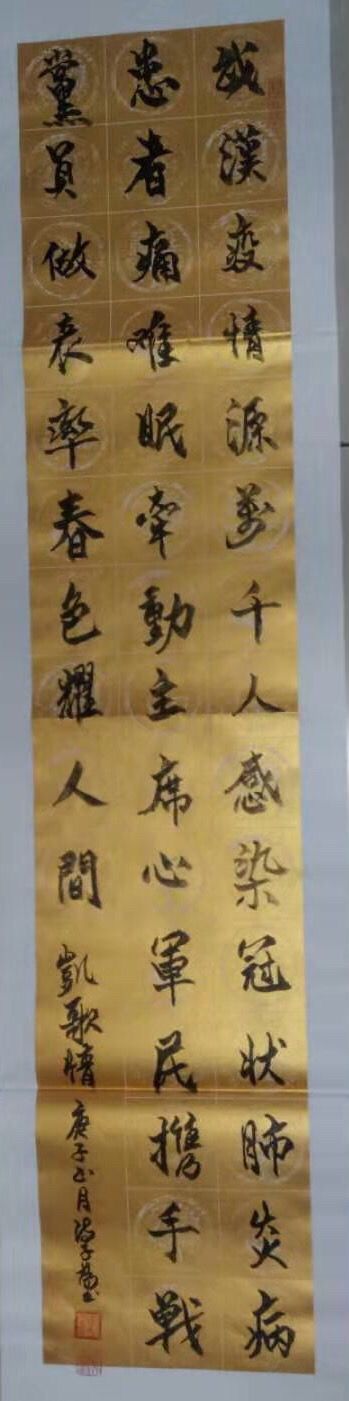 武漢疫情源萬千人感染冠狀肺炎病
患者痛难眠牽動主席心軍民攜手戰
黨員做表率春色耀人間 凱歌情 庚子正月